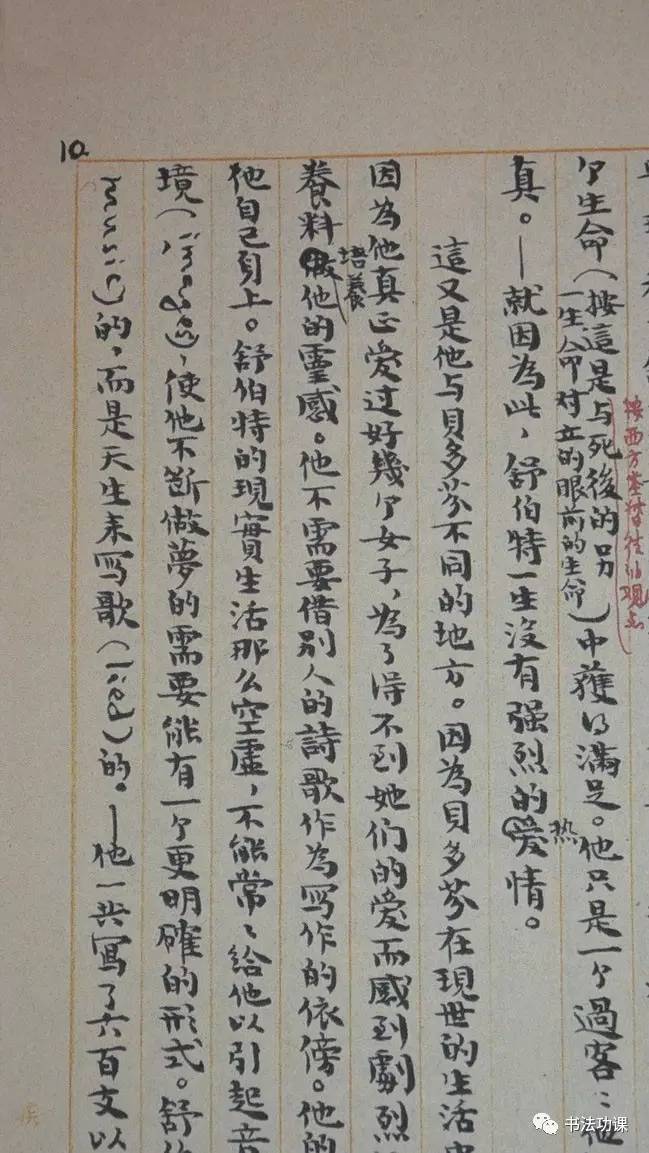 10.
个生命（按這是与死後的另
一生命对立的眼前的生命）中獲得滿足。他只是一个過客；他
按西方基督徒的观点
真。—就因為此，舒伯特一生沒有强烈的爱情。
热
這又是他与貝多芬不同的地方。因為貝多芬在現世的生活中
因為他真正愛过好幾个女子，為了得不到她们的爱而感到劇烈
養料做他的靈感。他不需要借別人的詩歌作為写作的依傍。他的
培養
他自己身上。舒伯特的現實生活那么空虛，不能常、給他以引起音
境（images），使他不斷做夢的需要能有一个更明確的形式。舒伯
music）的，而是天生来写歌（lied）的。—他一共寫了六百支以
书法功课